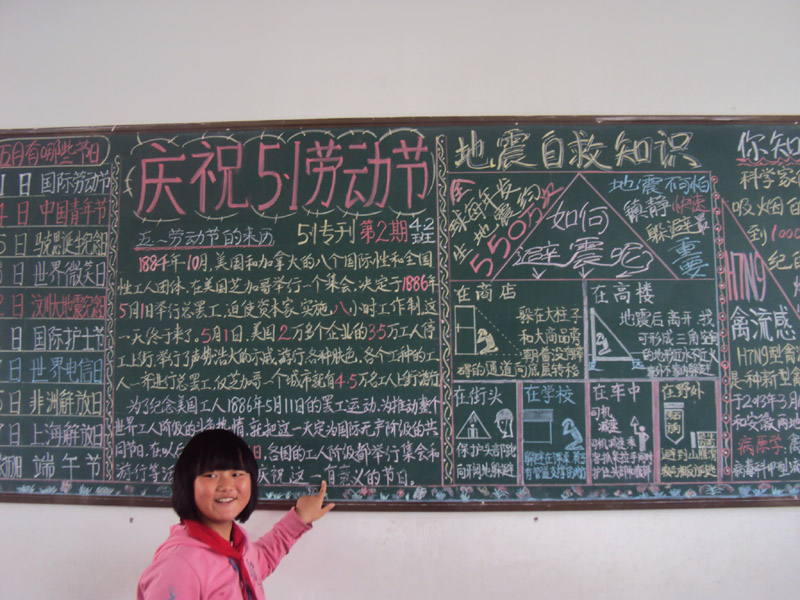 五月有哪些节日
1日 国际劳动节
4日 中国青年节
5日 马克思诞辰日
日 世界微笑日
2日 汶川大地震
日 国际护士节
7日 世界电信日
5日 非洲解放日
7日 上海解放日
端午节
庆祝5·1劳动节
五一劳动节的来历
51专刊 第2期 42班
1884年10月,美国和加拿大的八个国际性和全国
性工人团体,在美国芝加哥举行一个集会,决定于1886年
5月1日举行总罢工,迫使资本家实施八小时工作制,这
一天终于来了。5月1日,美国2万多个企业的35万工人停
工上街,举行了声势浩大的示威游行,各种肤色,各个工种的工
人一齐进行总罢工,仅芝加哥一个城市就有4.5万名工人上街游行
为了纪念美国工人1886年5月11日的罢工运动,为推动整个
世界工人阶级的斗争热情,就把这一天定为国际无产阶级的共
同节日。在以后
日,各国的工人阶级都举行集会和
游行等活
庆祝这一有意义的节日。
地震自救知识
全球每年发生地震约
550万次
如何
避震呢
地震不可怕
镇静 快速
躲避最
重要
在商店
躲在大柱子
和大商品旁
朝着没障
碍的通道
在高楼
地震后离开
可形成三角空
在街头
保护头部
向开阔地躲避
在学校
在车中
司机
减速
在野外
避到
你知
科学家
吸烟
到100
H7N9
禽流感
H7N9型禽
是一种新型禽
于2013年3月
和安徽两地
病原学:禽
病毒科